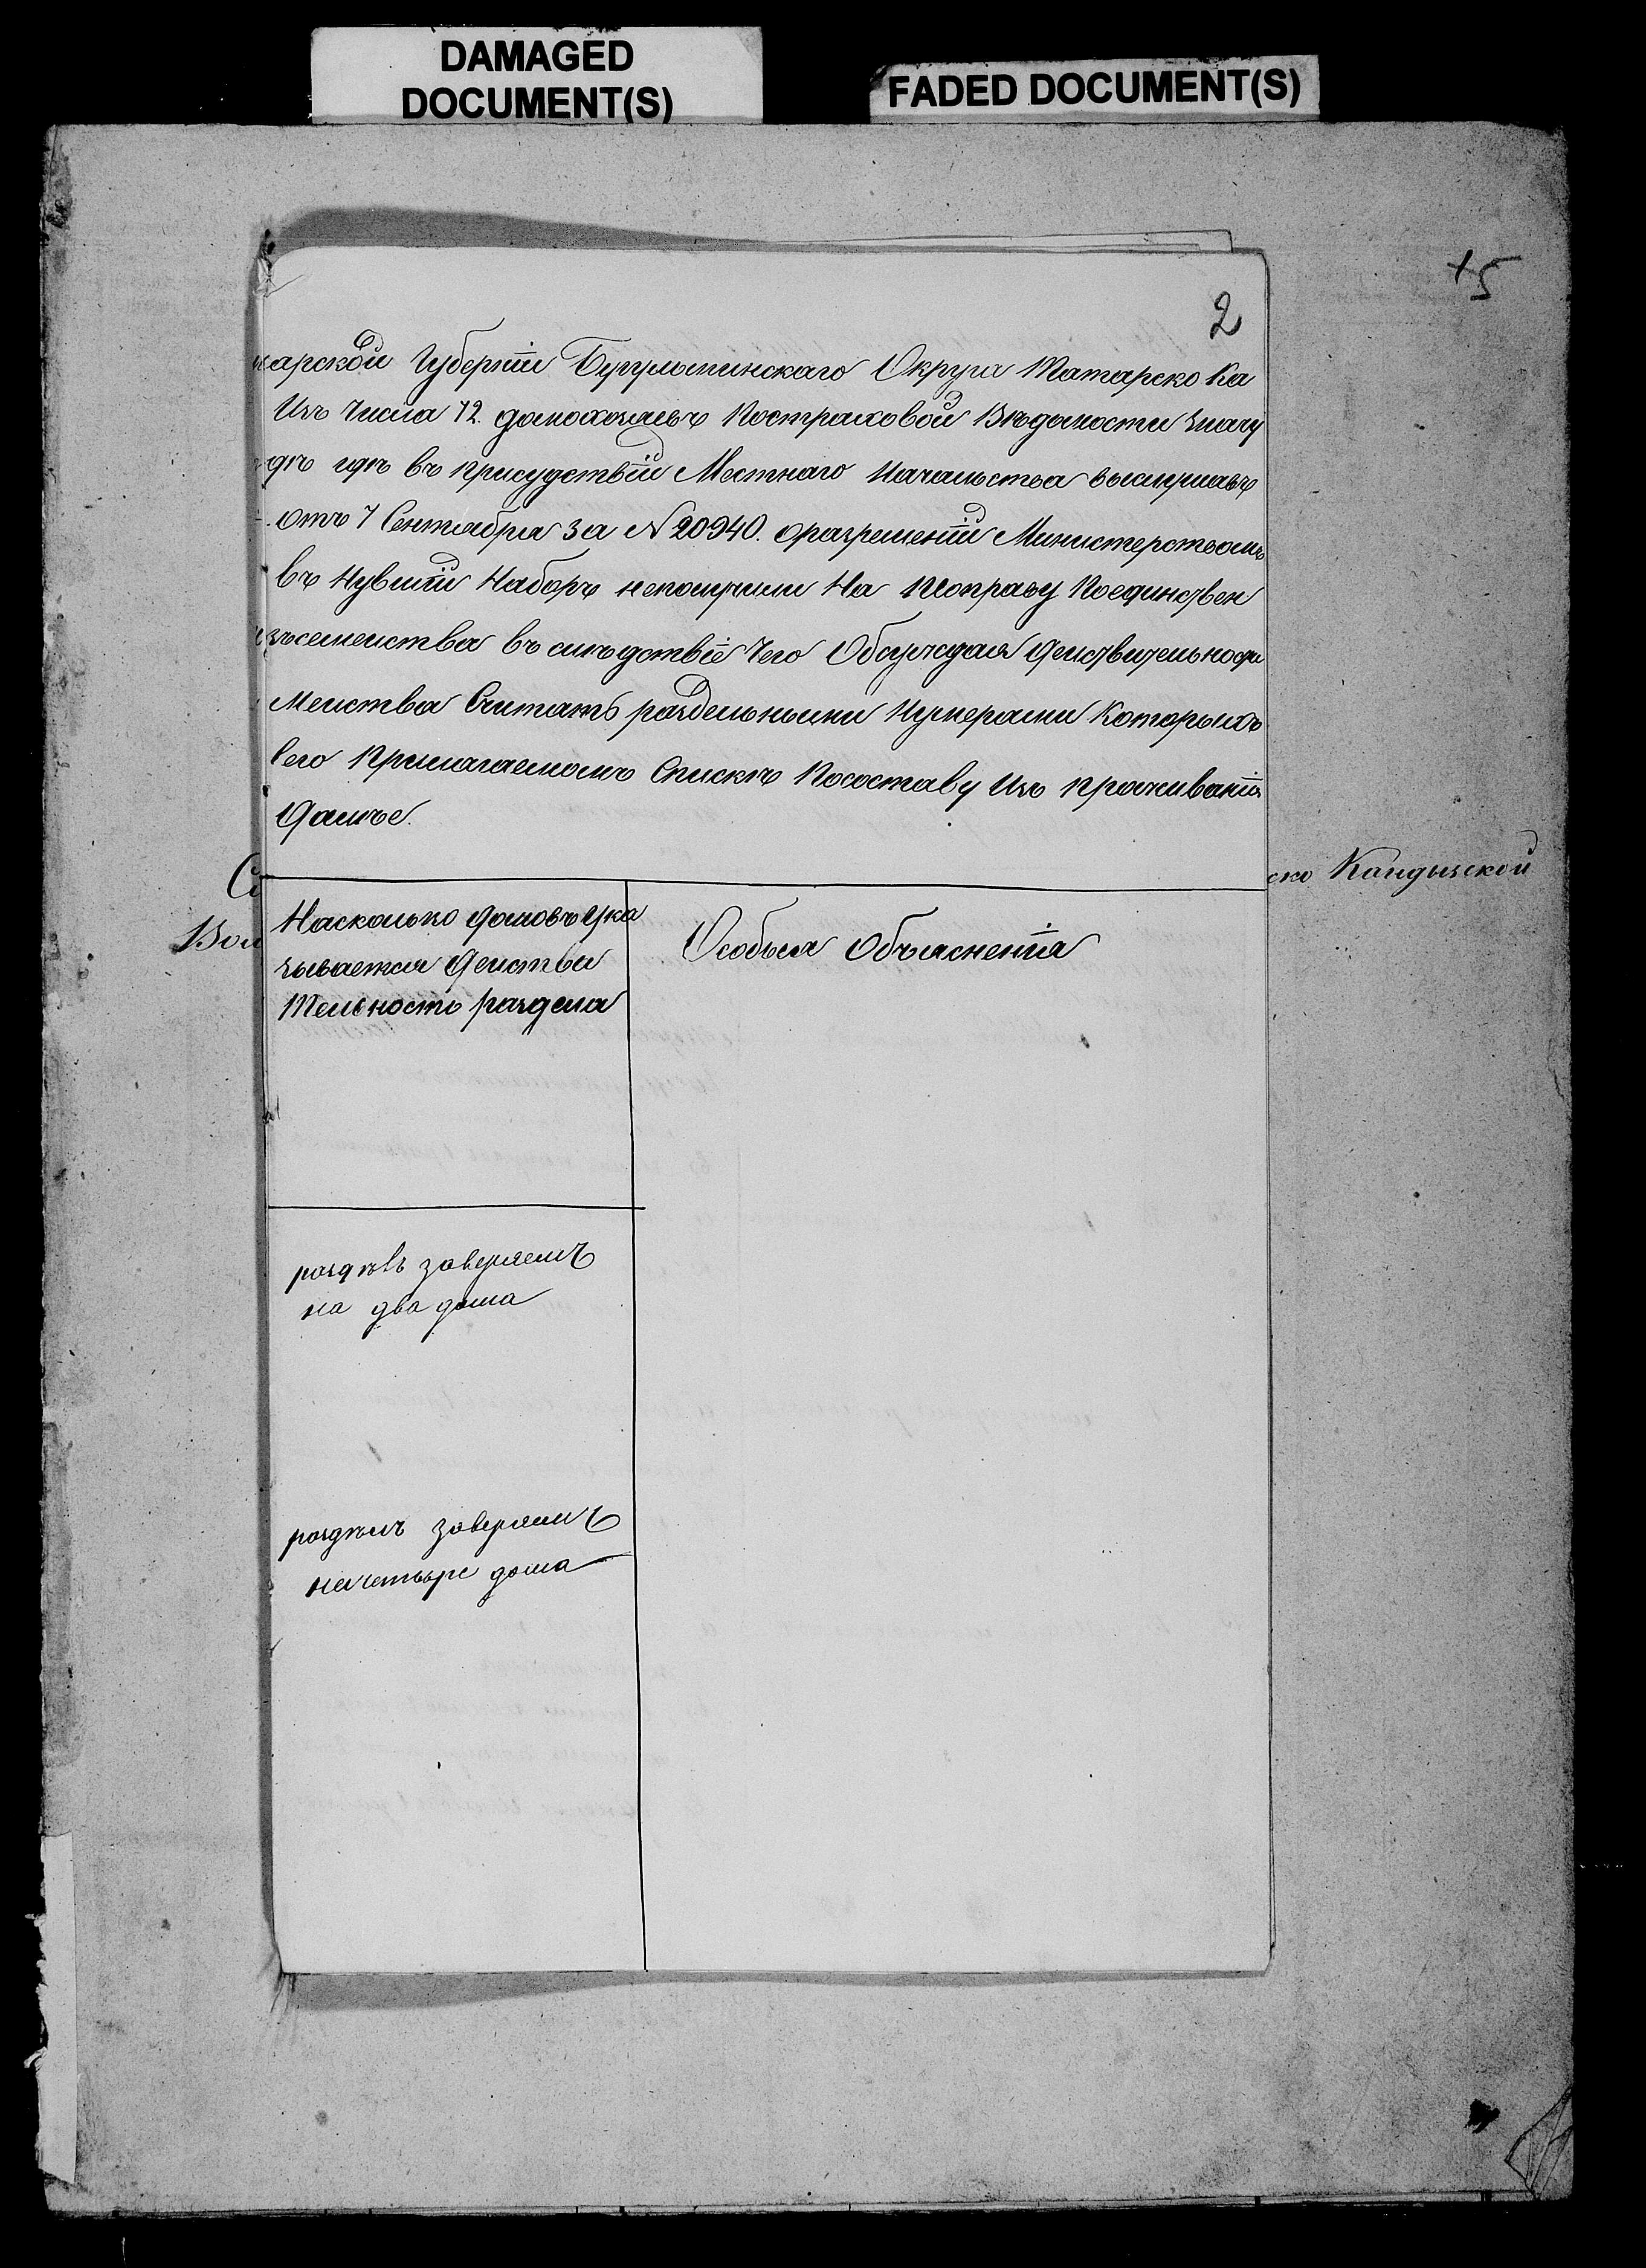 DAMAGED
DOCUMENT(S)
FADED DOCUMENT(S)
+5
2
марской Губерніи Бугульминскаго Округа Татарско Ка
Изъ Числа 72. домохозяевъ Постраховой Вѣдомости Значу
дѣ гдѣ въ присудствіи Местнаго Начальства выслушавъ
отъ 7 Сентября За № 20940. оразрешеніи Министерством
въ Нувшій Наборъ непоступили На Поправу Поединствен
изъсемеиства въ слѣдствіе Чего Обсуждая Деиствительности
Меиства Считать раздельными Нумерами Которыхъ
Сего Прилагаемомъ Спискѣ Посоставу Изъ проживанія
Далѣе.
ско Кандызской
Со
Вол
Насколько Домовъ Ука
зывается Деистви
Тельность раздела
Особыя Объясненія
раздѣлъ заверяемъ
на два дома
раздѣлъ заверяемъ
на четыре дома